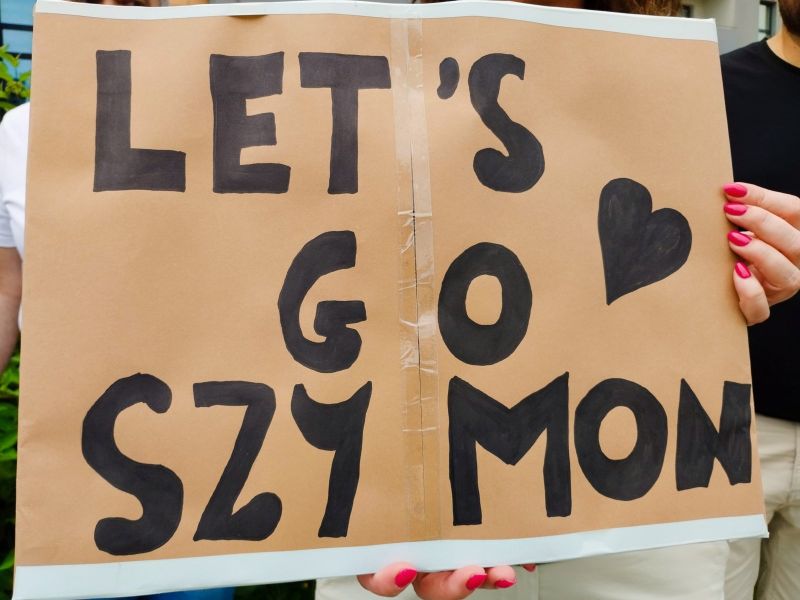 LET'S
GO
SZYMON